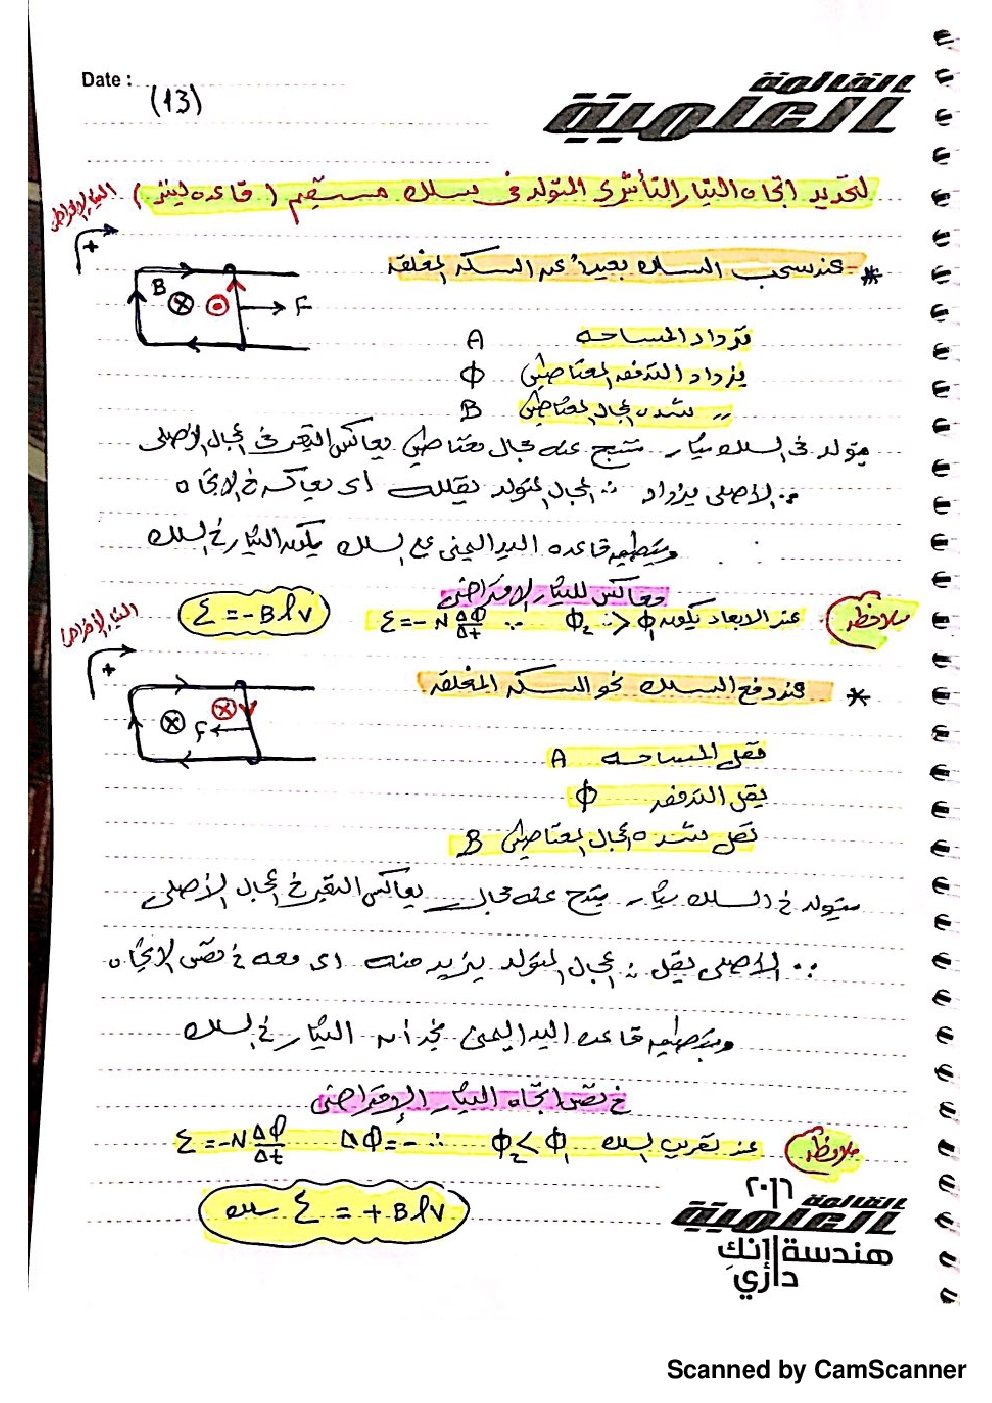 Date :
(13)
القائمة
العلمية
لتحديد اتجاه التيار التأثيري المتولد في سلك مستقيم (قاعدة لينز)
التيار الافتراضي
+
* عند سحب السلك بعيداً عن السكة المغلقة
B
F
تزداد المساحه A
يزداد التدفق المغناطيسي Φ
״ شده المجال المغناطيسي B
يتولد في السلك تيار ينتج عنه مجال مغناطيسي يعاكس التغير في المجال الأصلي
∵ الأصلي يزداد ∴ المجال المتولد يقلله اى يعاكسه في الاتجاه
وبتطبيق قاعده اليد اليمنى على السلك يكون التيار في السلك
معاكس للتيار الافتراضي
ملاحظه عند الابعاد يكون Φ₂ > Φ₁ ∵ Ɛ = -N ΔΦ/Δt
Ɛ = -Bℓv
التيار الافتراضي
+
* عند دفع السلك نحو السكه المغلقه
F
تقل المساحه A
يقل التدفق Φ
تقل شده المجال المغناطيسي B
يتولد في السلك تيار ينتج عنه مجال يعاكس التغير في المجال الأصلي
∵ الأصلي يقل ∴ المجال المتولد يزيد منه اى معه في نفس الاتجاه
وبتطبيق قاعده اليد اليمنى نجد أن التيار في السلك
في نفس اتجاه التيار الافتراضي
ملاحظه عند تقريب السلك Φ₂ < Φ₁ ∴ ΔΦ = - Ɛ = -N ΔΦ/Δt
Ɛ سلك = + Bℓv
٢٠١٦
القائمة
العلمية
هندسة إنكِ
دازي
Scanned by CamScanner